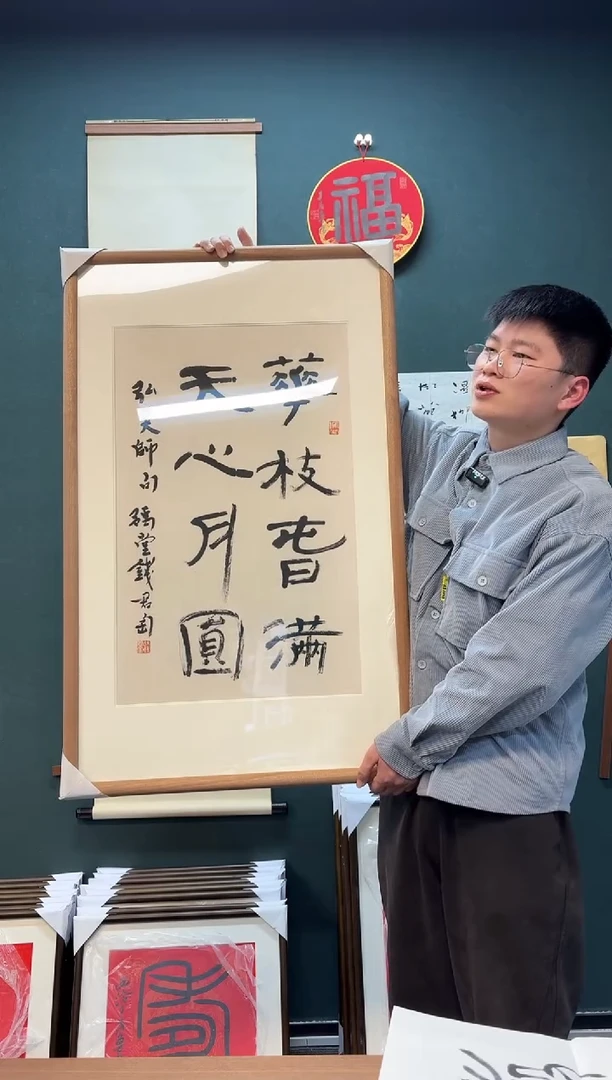 福
華枝旾滿
天心月圓
弘一大師句 豫堂錢君匋
壽